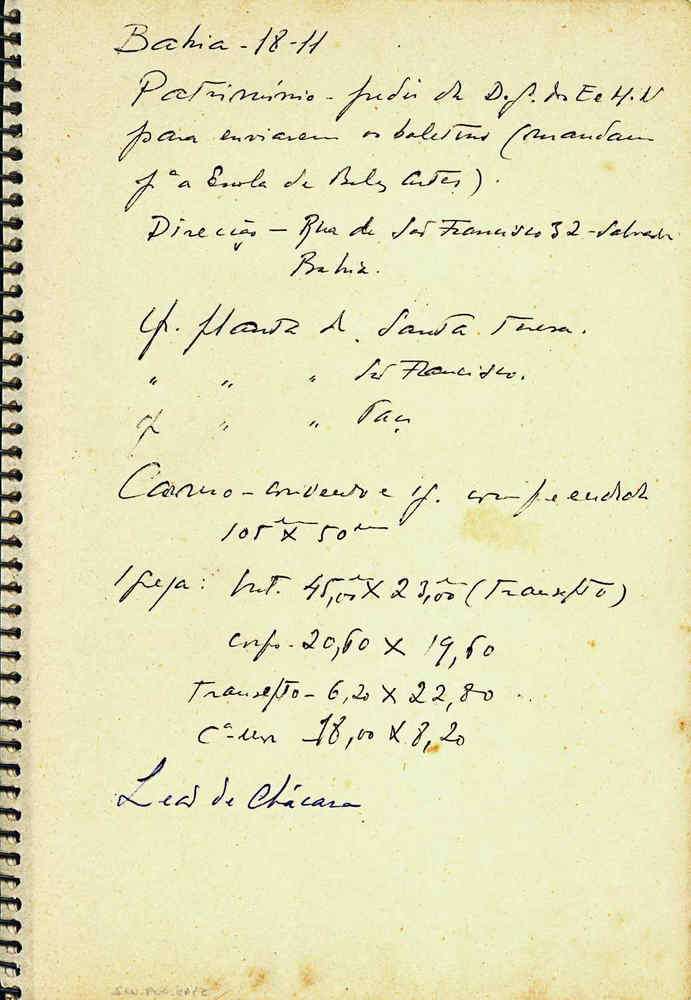 Bahia - 18-11
Patrimônio - pedir da D. g. dos E e H. N
para enviarem os boletins (mandam
pª a Escola de Belas Artes).
Direcção - Rua de São Francisco 32 - Salvador
Bahia.
Ig. planta de Santa Teresa.
" " " São Francisco.
" "
Carmo - convento e ig. compreendida
105m X 50m
Igreja: Int. 45,00m X 23,00m (transepto)
corpo - 20,60 X 19,60
Transepto - 6,20 X 22,80
Cª-mor 18,00 X 8,20
Leão de Chácara